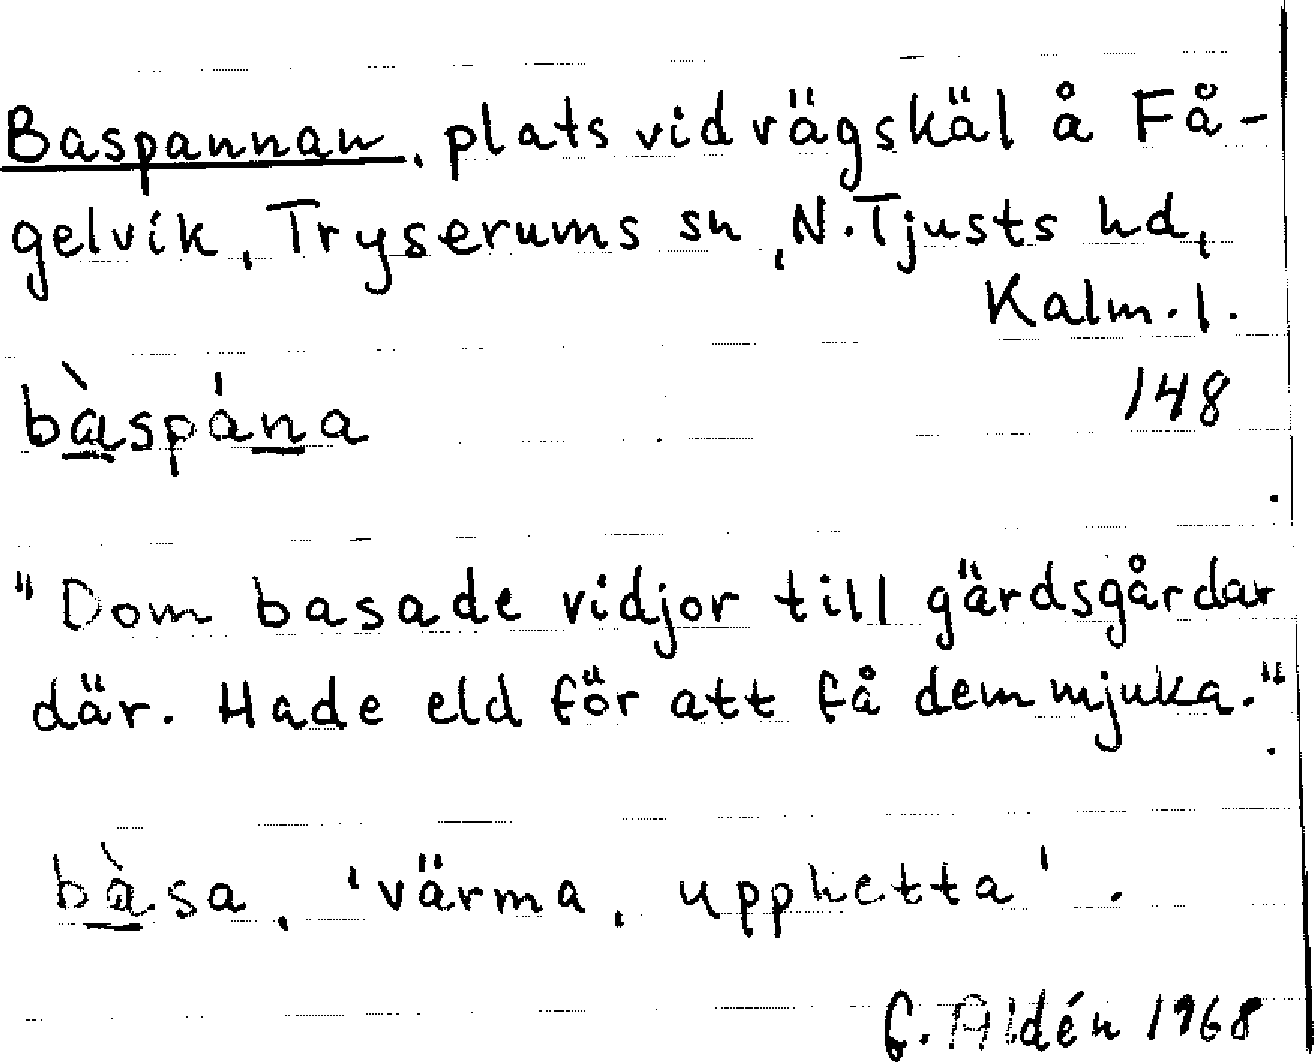 Baspannan, plats vid vägskäl å Få-
gelvik, Tryserums sn, N. Tjusts hd,
Kalm. l.
bàspána 148
"Dom basade vidjor till gärdsgårdar
där. Hade eld för att få dem mjuka."
bàsa, 'värma, upphetta'.
G. Aldén 1968